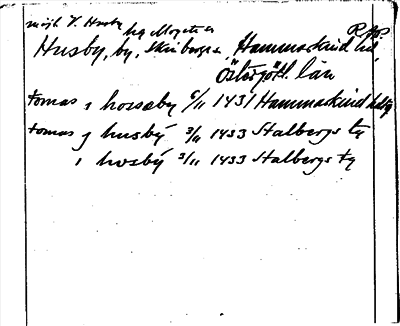 möjl. V. Husby hg Mogata sn RAP
Husby, by, Skönberga sn Hammarkind hd,
Östergötl. län
tomas i horsaby 6/11 1431 Hammarkind hdtg
tomas j husby 3/11 1433 Stalbergs tg
i hosby 3/11 1433 Stalbergs tg